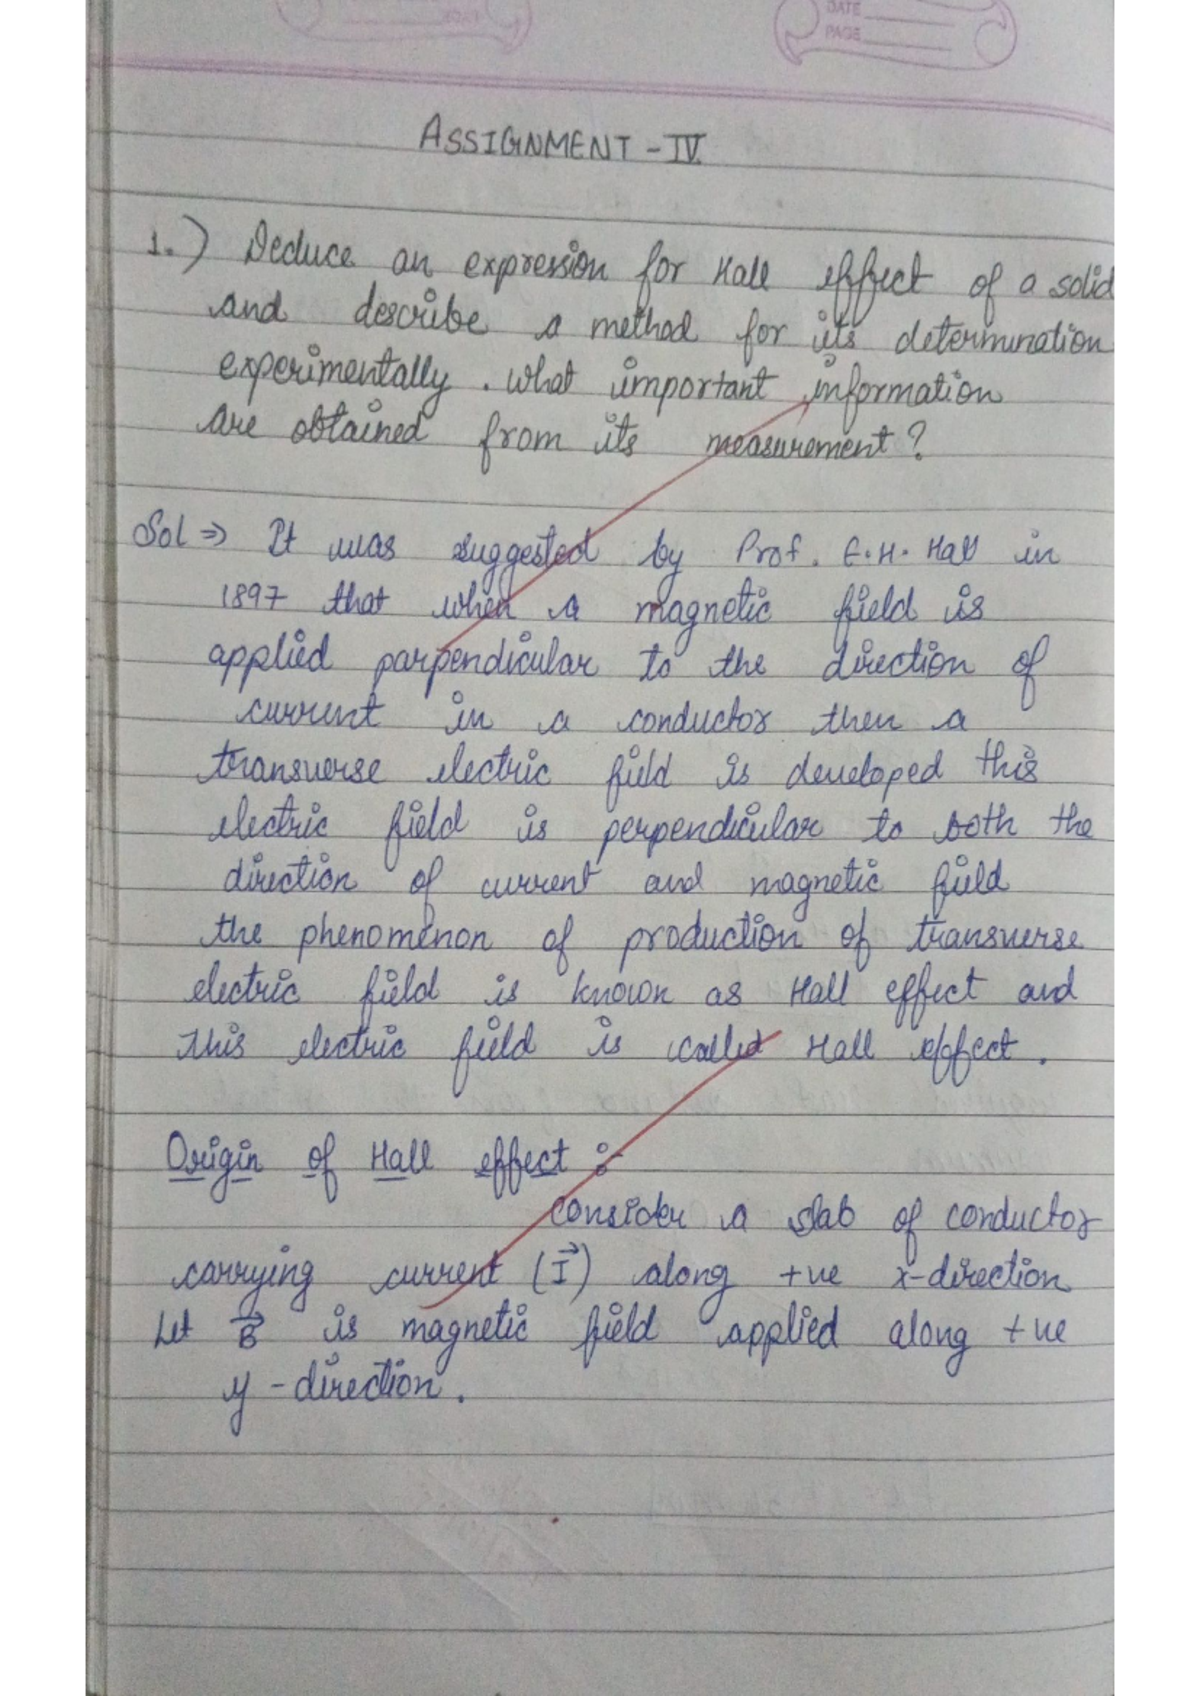 DATE
PAGE
ASSIGNMENT - IV
1.) Deduce an expression for Hall effect of a solid
and describe a method for its determination
experimentally. what important information
are obtained from its measurement?
Sol ⇒ It was suggested by Prof. E.H. Hall in
1897 that when a magnetic field is
applied parpendicular to the direction of
current in a conductor then a
transverse electric field is developed this
electric field is perpendicular to both the
direction of current and magnetic field
the phenomenon of production of transverse
electric field is known as Hall effect and
this electric field is called Hall effect.
Origin of Hall effect :-
Consider a slab of conductor
carrying current (I⃗) along +ve x-direction
Let B⃗ is magnetic field applied along +ve
y-direction.